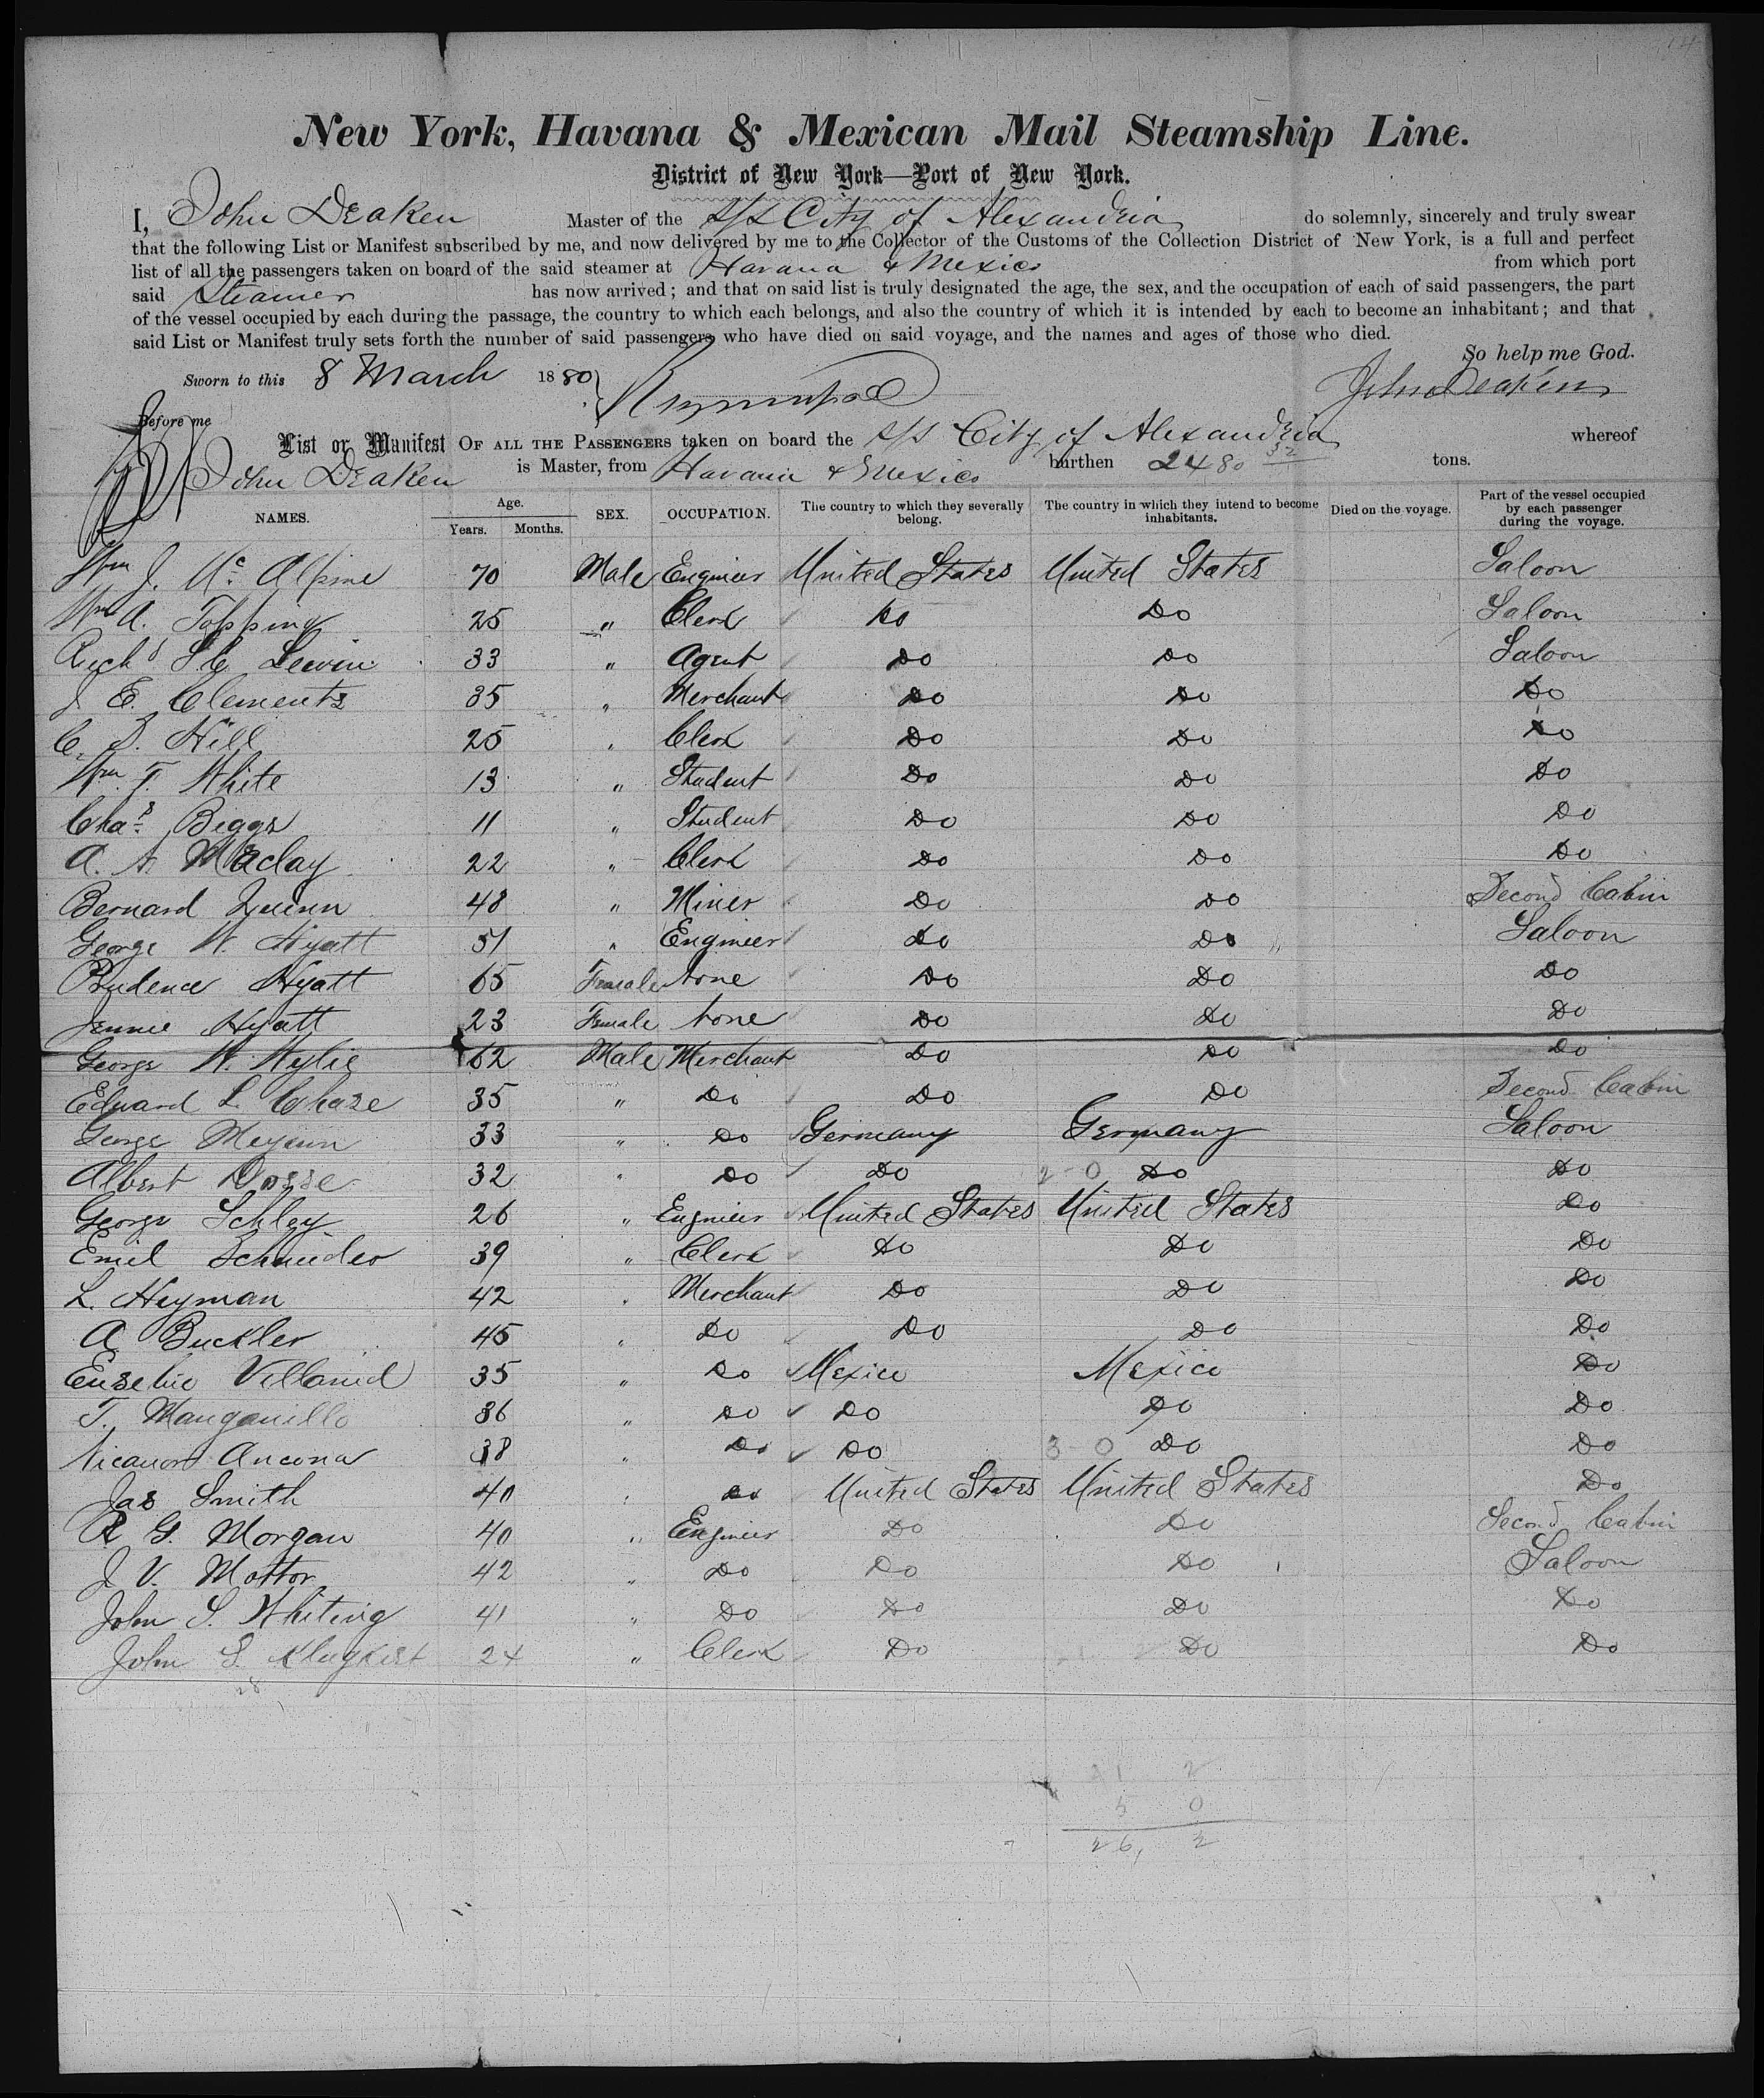 New York, Havana & Mexican Mail Steamship Line.
District of New York—Port of New York.
I, John Deaken Master of the S/S City of Alexandria do solemnly, sincerely and truly swear
that the following List or Manifest subscribed by me, and now delivered by me to the Collector of the Customs of the Collection District of New York, is a full and perfect
list of all the passengers taken on board of the said steamer at Havana & Mexico from which port
said Steamer has now arrived; and that on said list is truly designated the age, the sex, and the occupation of each of said passengers, the part
of the vessel occupied by each during the passage, the country to which each belongs, and also the country of which it is intended by each to become an inhabitant; and that
said List or Manifest truly sets forth the number of said passengers who have died on said voyage, and the names and ages of those who died.
So help me God.
Sworn to this 8 March 1880 John Deaken
Before me
List or Manifest OF ALL THE PASSENGERS taken on board the S/S City of Alexandria whereof
John Deaken is Master, from Havana & Mexico burthen 2480 32 tons.
NAMES. Age. Years. Months. SEX. OCCUPATION. The country to which they severally belong. The country in which they intend to become inhabitants. Died on the voyage. Part of the vessel occupied by each passenger during the voyage.
Wm J. Mc Alpine 70 Male Engineer United States United States Saloon
Wm A. Topping 25 " Clerk Do Do Saloon
Richd 33 " Agent Do Do Saloon
J. E. Clements 35 " Merchant Do Do Do
C. Hill 25 " Clerk Do Do Do
Wm. T. White 13 " Student Do Do Do
Chas Biggs 11 " Student Do Do Do
A. Maclay 22 " Clerk Do Do Do
Bernard Quinn 48 " Miner Do Do Second Cabin
George W. Hyatt 51 " Engineer Do Do Saloon
Prudence Hyatt 65 Female None Do Do Do
Jennie Hyatt 23 Female None Do Do Do
George W. Wylie 62 Male Merchant Do Do Do
Edward L. Chase 35 " Do Do Do Second Cabin
George 33 " Do Germany Germany Saloon
Albert Dosse 32 " Do Do 2-0 Do Do
George Schley 26 " Engineer United States United States Do
Emil Schneider 39 " Clerk Do Do Do
L. Heyman 42 " Merchant Do Do Do
A Buckler 45 " Do Do Do Do
Eusebio 35 " Do Mexico Mexico Do
T. Manganillo 36 " Do Do Do Do
Nicanor Ancona 38 " Do Do 3-0 Do Do
Jas Smith 40 " Do United States United States Do
R G. Morgan 40 " Engineer Do Do Second Cabin
J. V. Mottor 42 " Do Do Do Saloon
John S. Whiting 41 " Do Do Do Do
John S. 24 " Clerk Do Do Do
28
5 0
26, 2